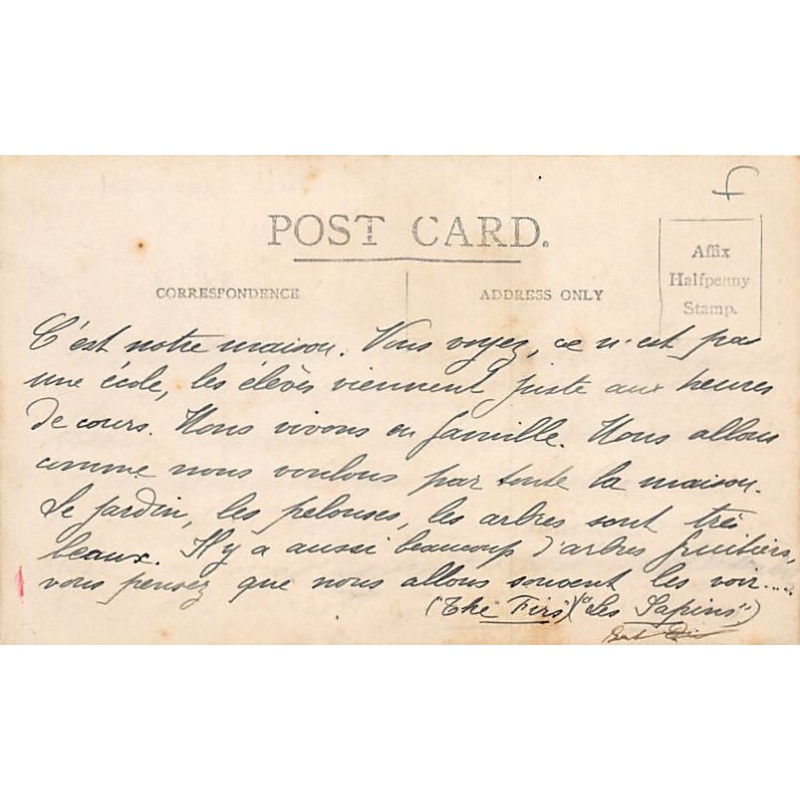 POST CARD.
CORRESPONDENCE
ADDRESS ONLY
Affix
Halfpenny
Stamp.
C'est notre maison. Vous voyez, ce n'est pas
une école, les élèves viennent juste aux heures
de cours. Nous vivons en famille. Nous allons
comme nous voulons par toute la maison.
Le jardin, les pelouses, les arbres sont très
beaux. Il y a aussi beaucoup d'arbres fruitiers,
vous pensez que nous allons souvent les voir....
(The Firs) ("Les Sapins")